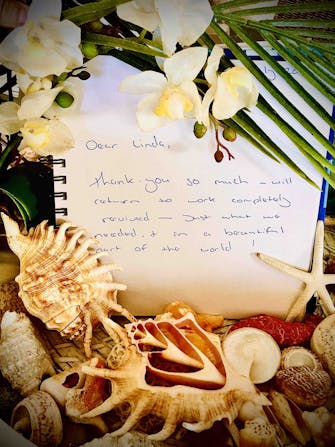 Dear Linda,
Thank-you so much - will
return to work completely
revived - Just what we
needed & in a beautiful
part of the world!